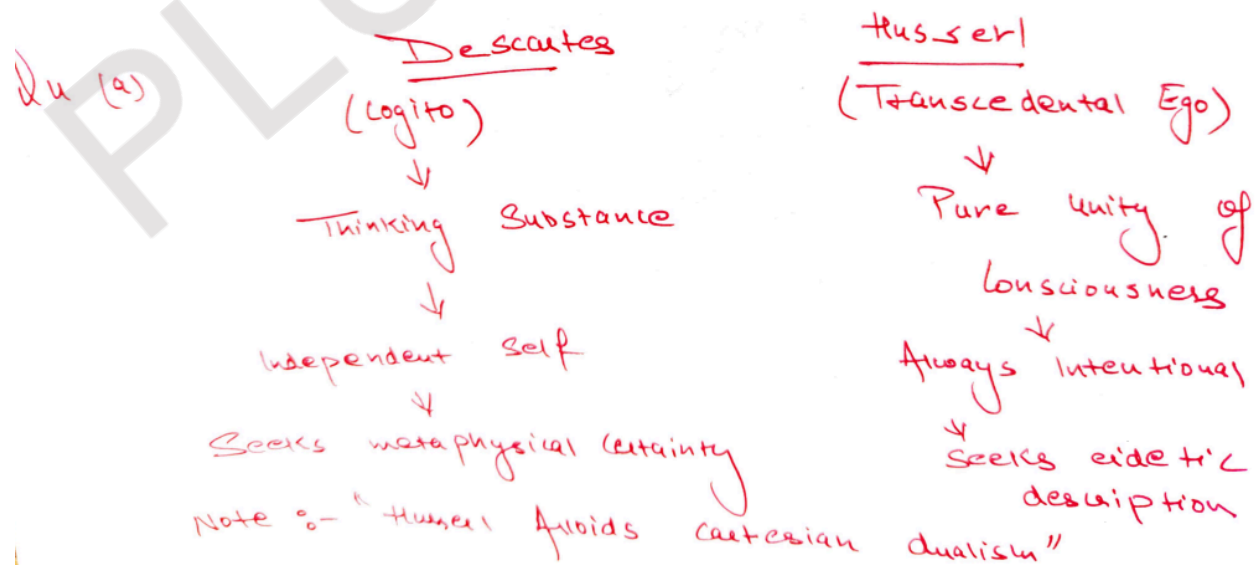 Qu (a)
Descartes
(Cogito)
↓
Thinking Substance
↓
Independent Self
↓
Seeks metaphysical Certainty
Husserl
(Transcedental Ego)
↓
Pure unity of
Consciousness
↓
Always Intentional
↓
Seeks eidetic
description
Note :- "Husserl Avoids cartesian dualism"